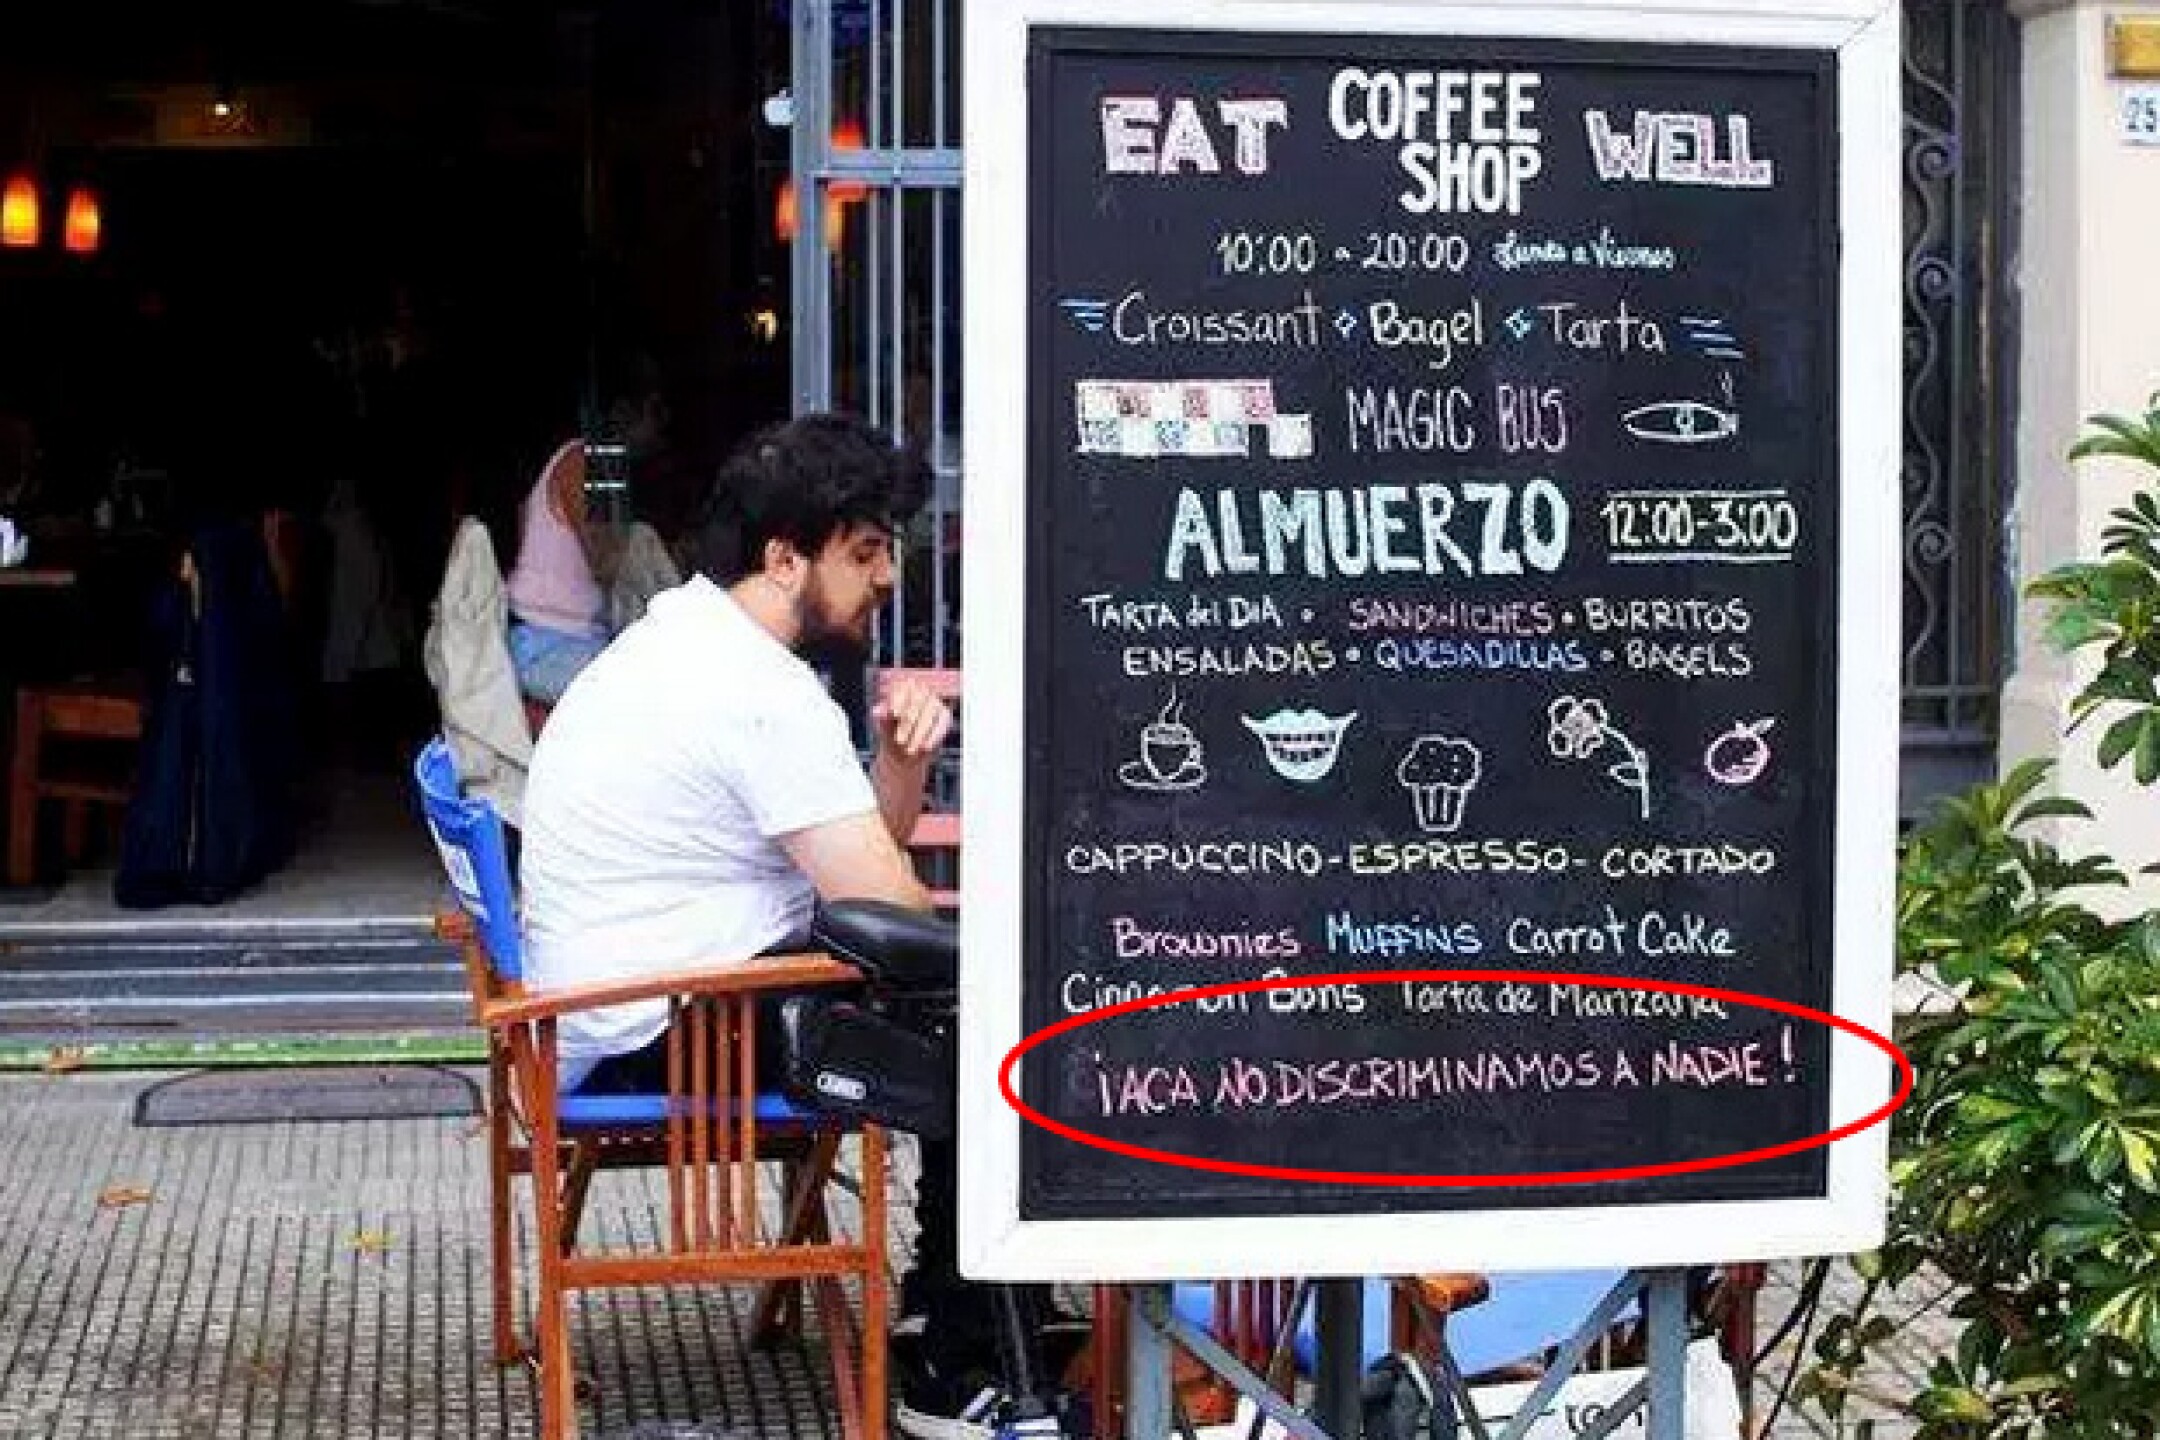 EAT COFFEE SHOP WELL
10:00 a 20:00 Lunes a Viernes
Croissant Bagel Tarta
MAGIC BUS
ALMUERZO 12:00-3:00
TARTA del DIA • SANDWICHES • BURRITOS
ENSALADAS • QUESADILLAS • BAGELS
CAPPUCCINO-ESPRESSO-CORTADO
Brownies MUFFINS Carrot Cake
Cinnamon Bons Tarta de Manzana
¡ACA NO DISCRIMINAMOS A NADIE!
25